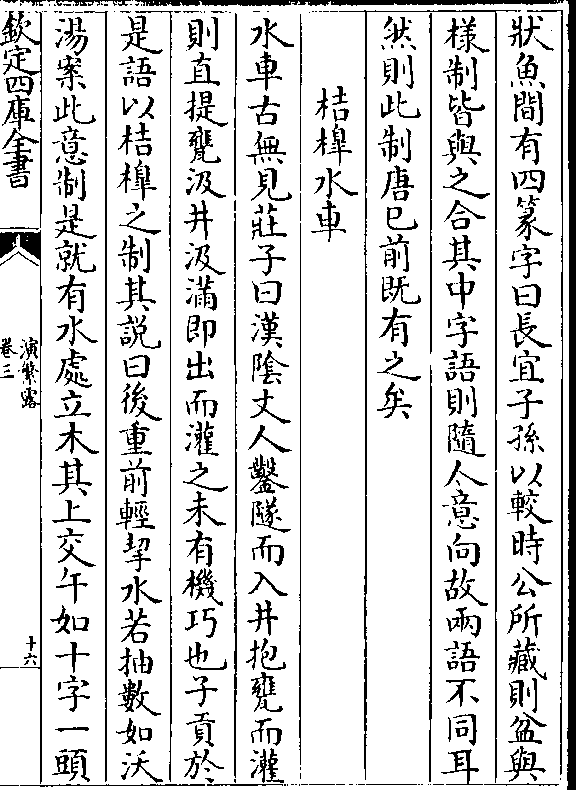 狀魚間有四篆字曰長宜子孫以較時公所藏則盆與
樣制皆與之合其中字語則隨今意向故兩語不同耳
然則此制唐已前既有之矣
桔橰水車
水車古無見莊子曰漢陰丈人鑿隧而入井抱甕而灌
則直提甕汲井汲滿即出而灌之未有機巧也子貢於
是語以桔橰之制其說曰後重前輕挈水若抽數如沃
湯案此意制是就有水處立木其上交午如十字一頭
欽定四庫全書
演繁露
卷三
十六